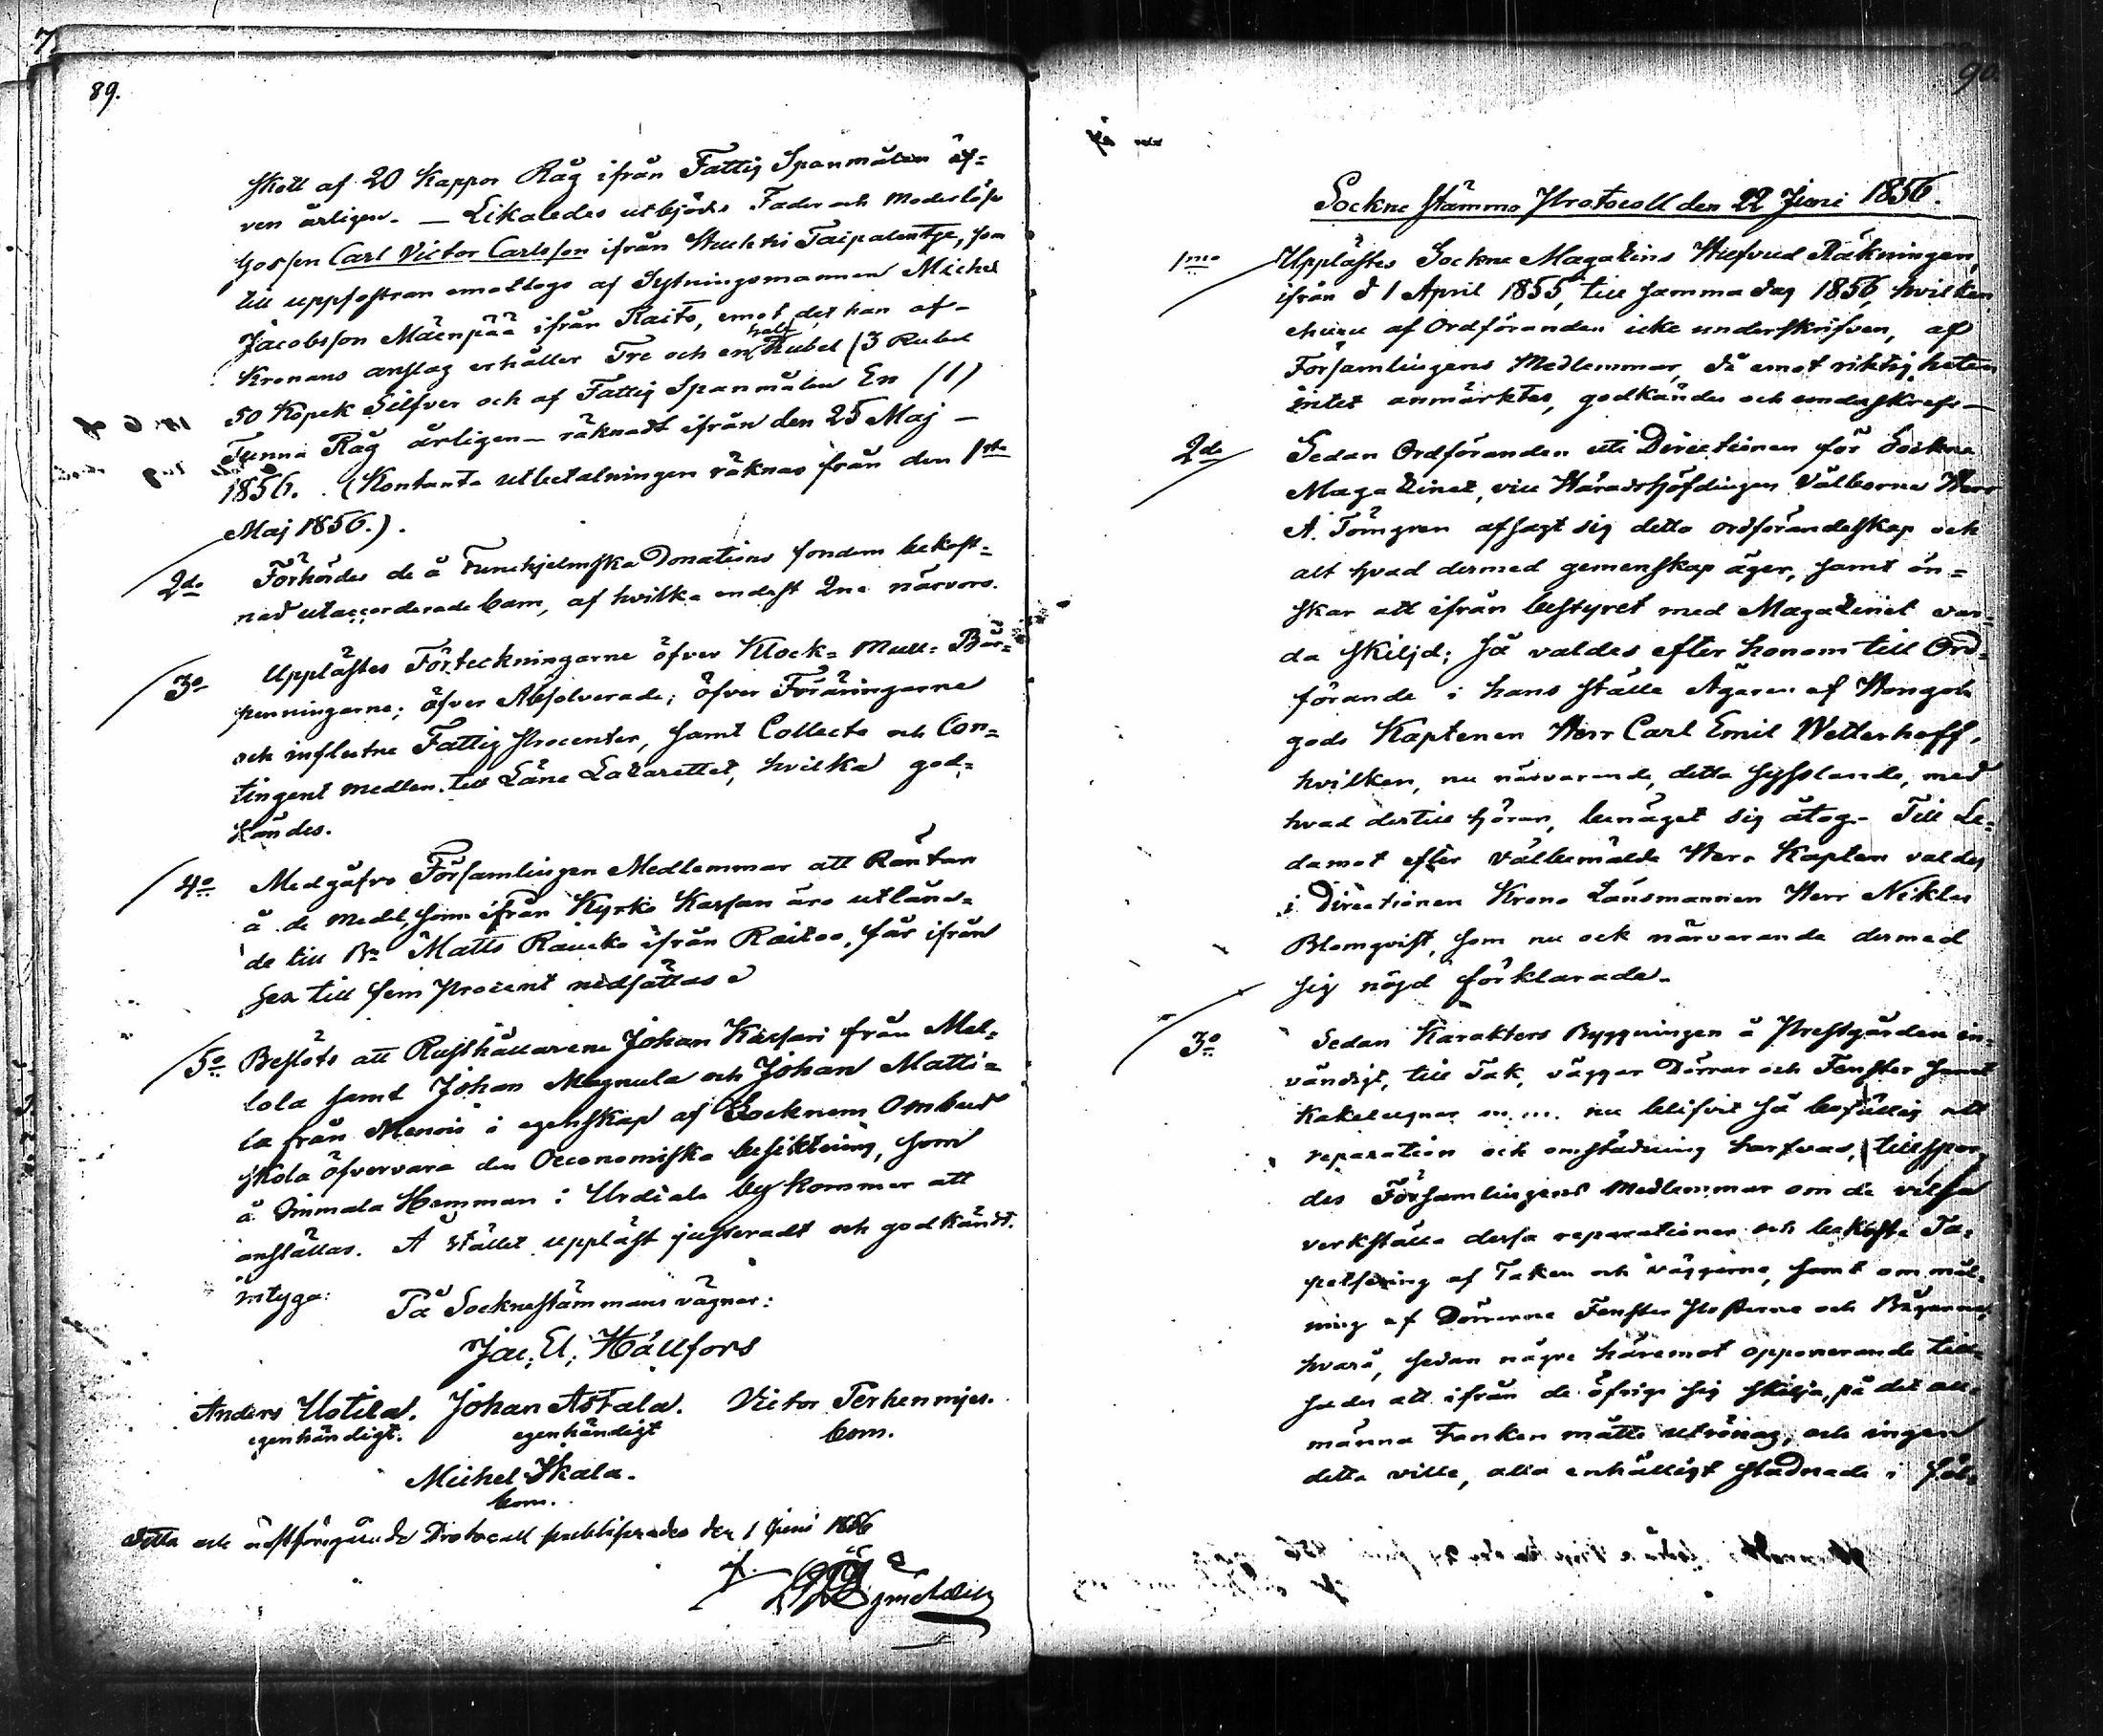 89.
skott af 20 Kappor Råg ifrån Fattig Spanmålen äf=
ven årligen. — Likaledes utbjöds Fader och Moderlöse
gossen Carl Victor Carlsson ifrån Huhtis Taipalentye, som
till uppfostran emottogs af Sytningsmannen Michel
Jacobsson Mäenpää ifrån Raito, emot det han af
Kronans anslag erhåller Tre och en half Rubel (3 Rubel
50 Kopek Silfver och af Fattig Spanmålen En (1)
Tunna Råg årligen — räknadt ifrån den 25 Maj —
1856. (Kontanta utbetalningen räknas från den 1sta
Maj 1856.).
2do Förhördes de å Funchjelmska Donations fonden bekost=
nad utaccorderade barn, af hvilka endast 2ne närvoro.
3o Upplästes Förteckningarne öfver Klock= Mull= Bår=
penningarne; öfver Absolverade; öfver Föräringarne
och influtne Fattig Procenter, samt Collecte och Con=
tingent medlen till Läns Lazarettet, hvilka god=
kändes.
4o Medgåfvo Församlingen Medlemmar att Räntan
å de medel, som ifrån Kyrko Kassan äro utlåna=
de till Bn Matts Rauko ifrån Raitoo, får ifrån
sex till fem Procent nedsättas
5o Beslöts att Rusthållarene Johan Kassari från Mel=
lola samt Johan Magnula och Johan Matti=
la från Menois i egenskap af Socknens Ombud
skola öfvervara den Oeconomiska besiktning, som
å Simmala Hemman i Urdiala by kommer att
anställas. Å stället uppläst justeradt och godkändt.
intyga:
På Socknestämmans vägnar:
Jac. El. Hällfors
Anders Uotila. Johan Astala. Victor Perhenmies.
egenhändigt. egenhändigt bom.
Michel Skala.
bom.
Detta och nästföregående Protocoll publicerades den 1 Juni 1856
90
Sockne Stämmo Protocoll den 22 Juni 1856.
1mo Upplästes Sockne Magazins Hufvud Räkningen,
ifrån d 1 April 1855, till samma dag 1856, hvilken
ehuru af Ordföranden icke underskrifven, af
Församlingens Medlemmar, då emot riktigheten
intet anmärktes, godkändes och underskrefs —
2do Sedan Ordföranden uti Directionen för Sockne
Magazinet, vice Häradshöfdingen Välborne Herr
A. Törngren afsagt sig detta ordförandeskap och
alt hvad dermed gemenskap äger, samt ön=
skar att ifrån bestyret med Magazinet var=
da skiljd; så valdes efter honom till Ord=
förande i hans ställe Ägaren af Hongola
gods Kaptenen Herr Carl Emil Wetterhoff,
hvilken, nu närvarande, detta sysslande, med
hvad dertill hörer, benäget sig åtog. Till Le=
damot efter Välbemälde Herr Kapten valdes
i Directionen Krono Länsmannen Herr Niklas
Blomqvist, som nu ock närvarande dermed
sig nöjd förklarade.
3o Sedan Karakters Byggningen å Prestgården in=
vändigt, till Tak, väggar Dörrar och Fenster samt
Kakelugnar m.m. nu blifvit så bofällig att
reparation och omstädning tarfvas, tillspor=
des Församlingens Medlemmar om de vilja
verkställa dessa reparationer och bekosta Ta=
petsering af Taken och väggarne, samt ommål=
ning af Dörrarne Fenster Posterne och Bågarne,
hvarå, sedan några häremot opponerande till=
sades att ifrån de öfriga sig skilja, på det all=
männa tanken måtte utrönas, och ingen
detta ville, alla enhälligt stadnade i föl=